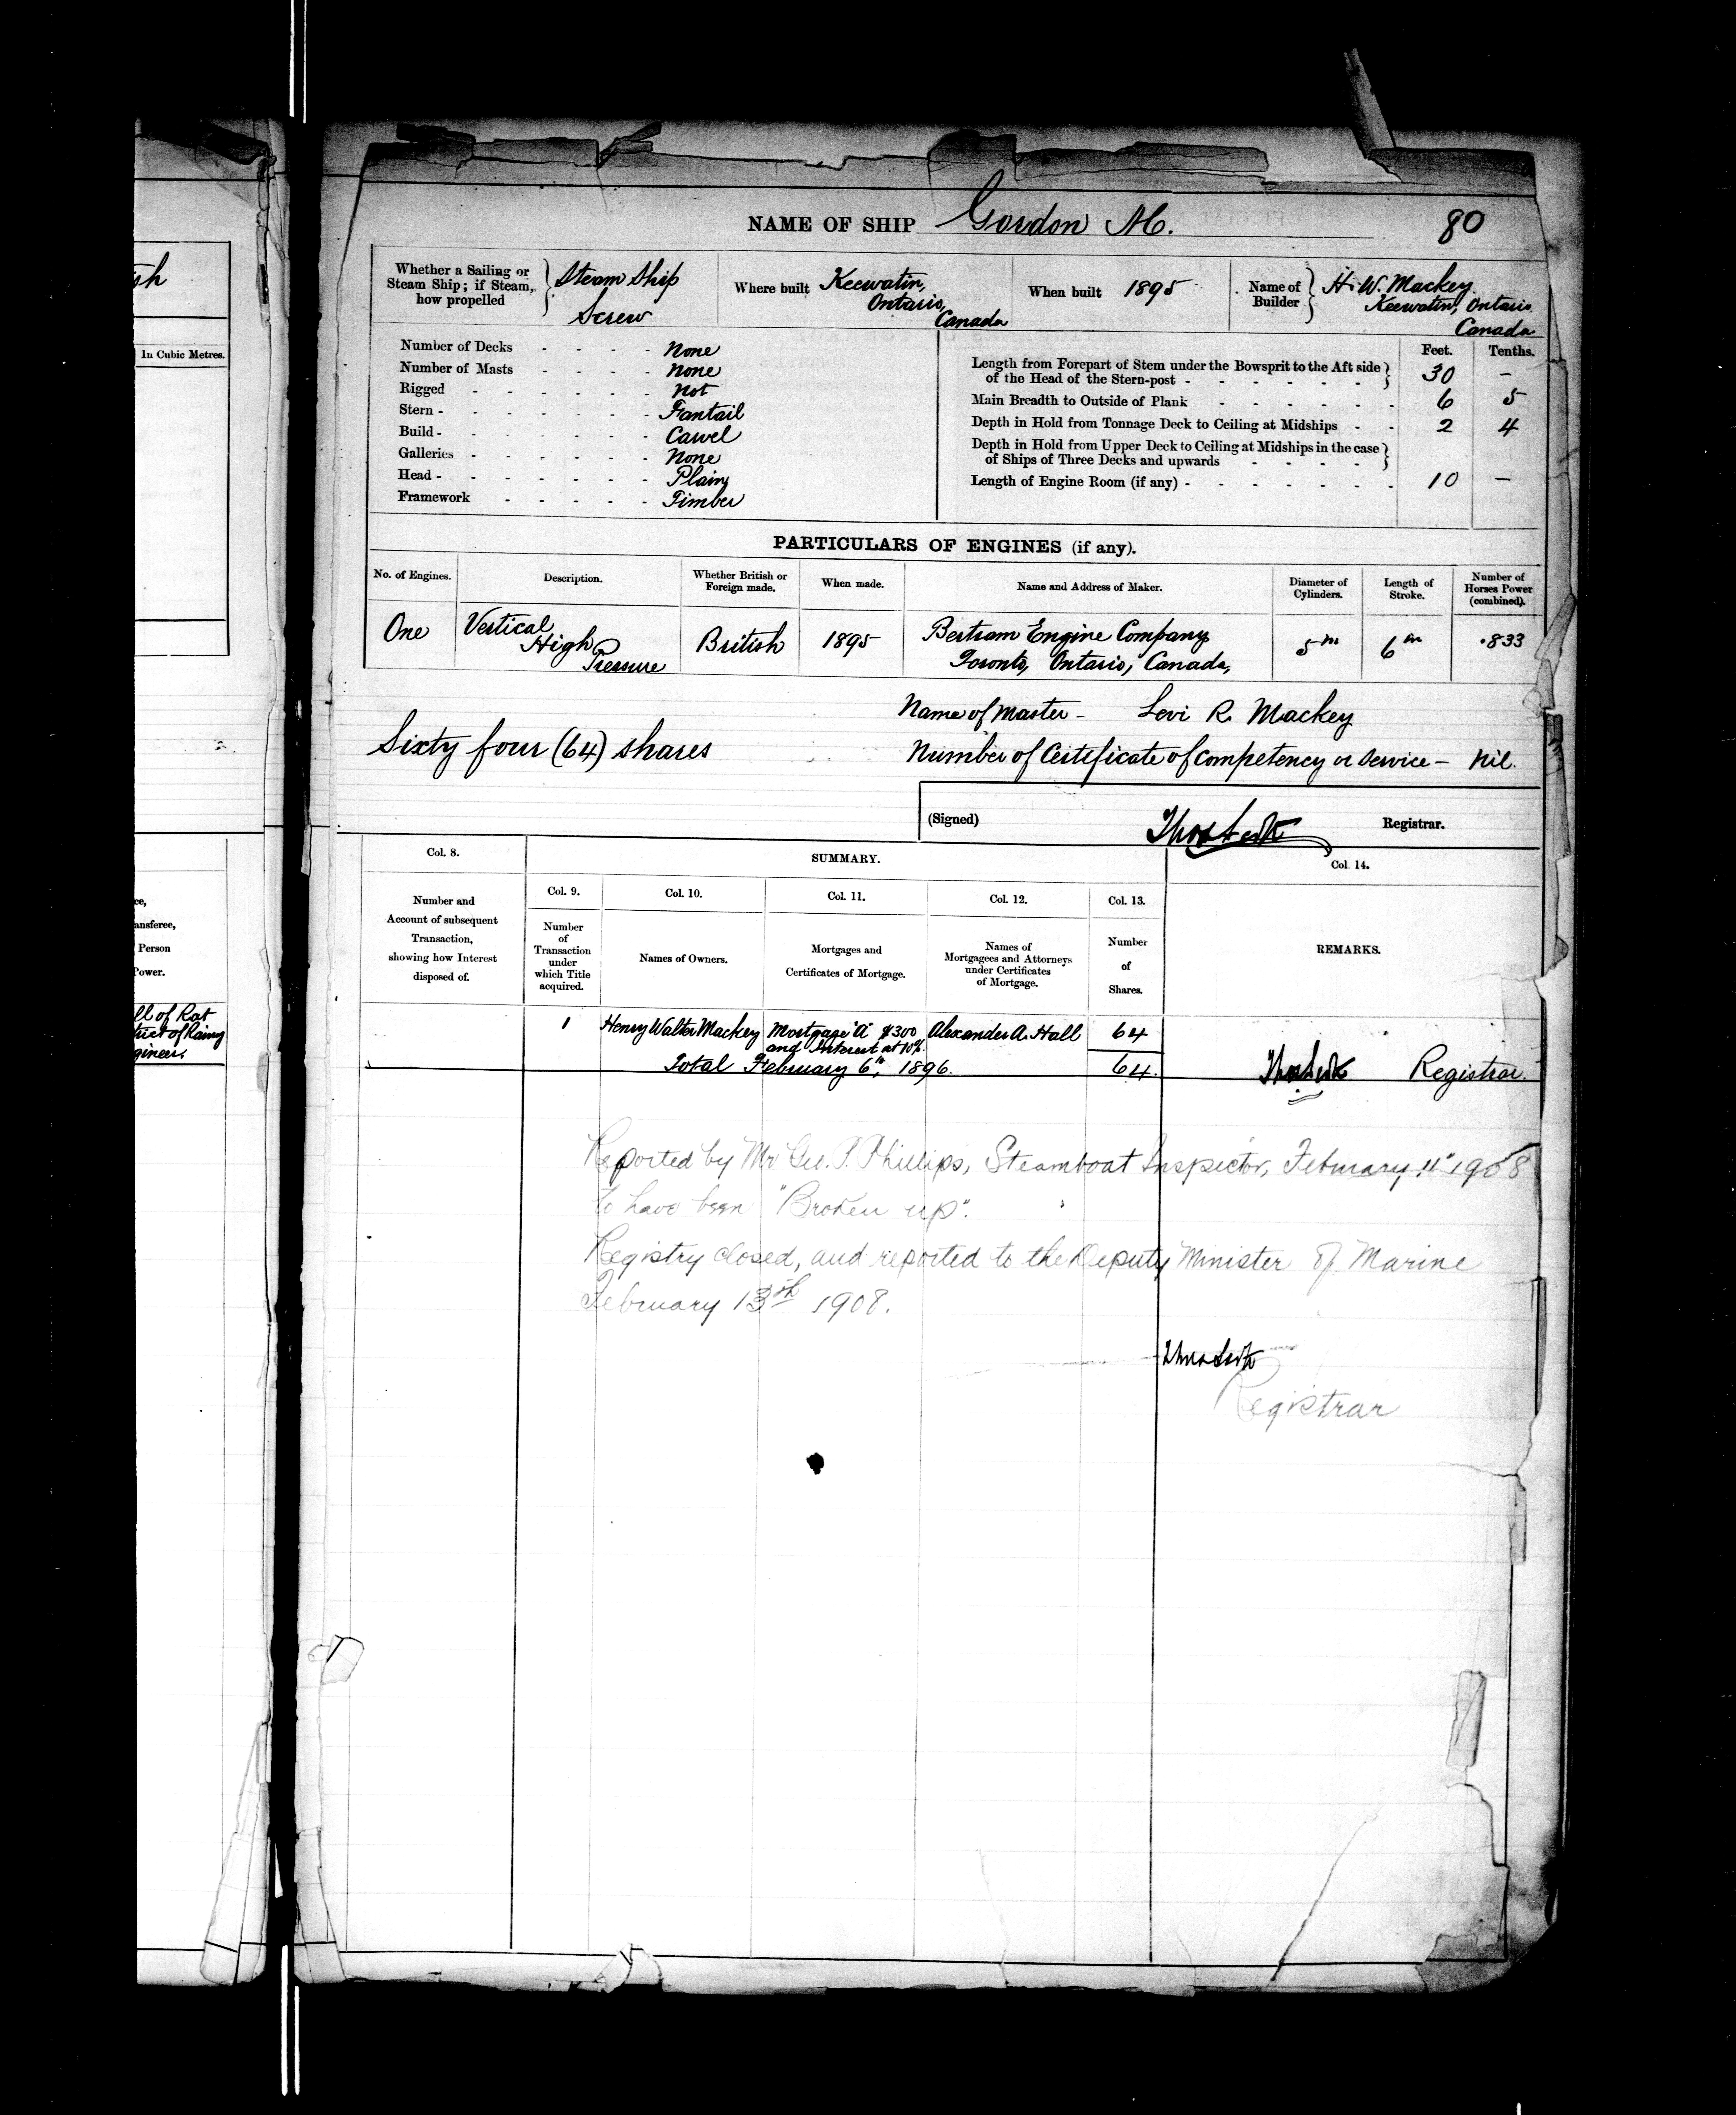 NAME OF SHIP Gordon M. 80
Whether a Sailing or Steam Ship; if Steam, how propelled } Steam Ship Screw
Where built Keewatin, Ontario, Canada
When built 1895
Name of Builder } H. W. Mackey Keewatin, Ontario Canada
Number of Decks - - - - None
Number of Masts - - - - None
Rigged - - - - - - Not
Stern - - - - - - - Fantail
Build - - - - - - - Cawel
Galleries - - - - - - None
Head - - - - - - - Plain
Framework - - - - - Timber
Feet. Tenths.
Length from Forepart of Stem under the Bowsprit to the Aft side
of the Head of the Stern-post - - - - - - } 30 –
Main Breadth to Outside of Plank - - - - - - 6 5
Depth in Hold from Tonnage Deck to Ceiling at Midships - - 2 4
Depth in Hold from Upper Deck to Ceiling at Midships in the case
of Ships of Three Decks and upwards - - - - }
Length of Engine Room (if any) - - - - - - - 10 –
PARTICULARS OF ENGINES (if any).
No. of Engines. Description. Whether British or Foreign made. When made. Name and Address of Maker. Diameter of Cylinders. Length of Stroke. Number of Horses Power (combined).
One Vertical High Pressure British 1895 Bertram Engine Company Toronto, Ontario, Canada, 5 in 6 in .833
Name of Master - Levi R. Mackey
Sixty four (64) shares
Number of Certificate of Competency or Service – Nil.
(Signed) Registrar.
Col. 8. SUMMARY. Col. 14.
Col. 9. Col. 10. Col. 11. Col. 12. Col. 13.
Number and Account of subsequent Transaction, showing how Interest disposed of.
Number of Transaction under which Title acquired.
Names of Owners.
Mortgages and Certificates of Mortgage.
Names of Mortgagees and Attorneys under Certificates of Mortgage.
Number of Shares.
REMARKS.
1 Henry Walter Mackey Mortgage "A" $300 and Interest at 10%. Alexander A. Hall 64
Total February 6th, 1896. 64. Registrar.
Reported by Mr Geo. P. Phillips, Steamboat Inspector, February 11" 1908
to have been "Broken up".
Registry closed, and reported to the Deputy Minister of Marine
February 13th 1908.
Registrar
In Cubic Metres.
ansferee,
Person
Power.
ll of Rat
trict of Rainy
gineer.